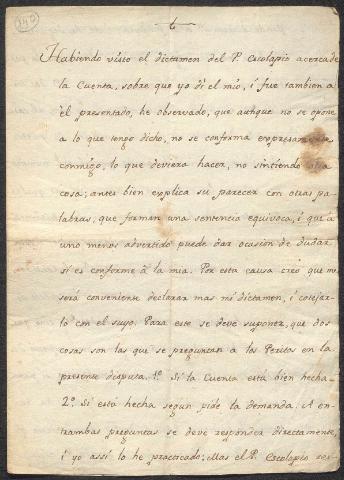 140
Habiendo visto el dictamen del P. Escolapio acerca de
la Cuenta, sobre que yo dì el mio, i fue tambien a
èl presentado, he observado, que aunque no se opone
a lo que tengo dicho, no se conforma expresamente
conmigo, lo que deviera hacer, no sintiendo otra
cosa; antes bien explica su parecer con otras pa-
labras, que forman una sentencia equivoca, i que à
uno menos advertido puede dar ocasion de dudar
si es conforme à la mia. Por esta causa creo que me
serà conveniente declarar mas mi dictamen, i cotejar-
lo con el suyo. Para este se deve suponer, que dos
cosas son las que se preguntan a los Peritos en la
presente disputa. 1º. Si la Cuenta està bien hecha.
2º. Si està hecha segun pide la demanda. A en-
trambas preguntas se deve responder directamente,
i yo assì lo he practicado; Mas el P. Escolapio res-